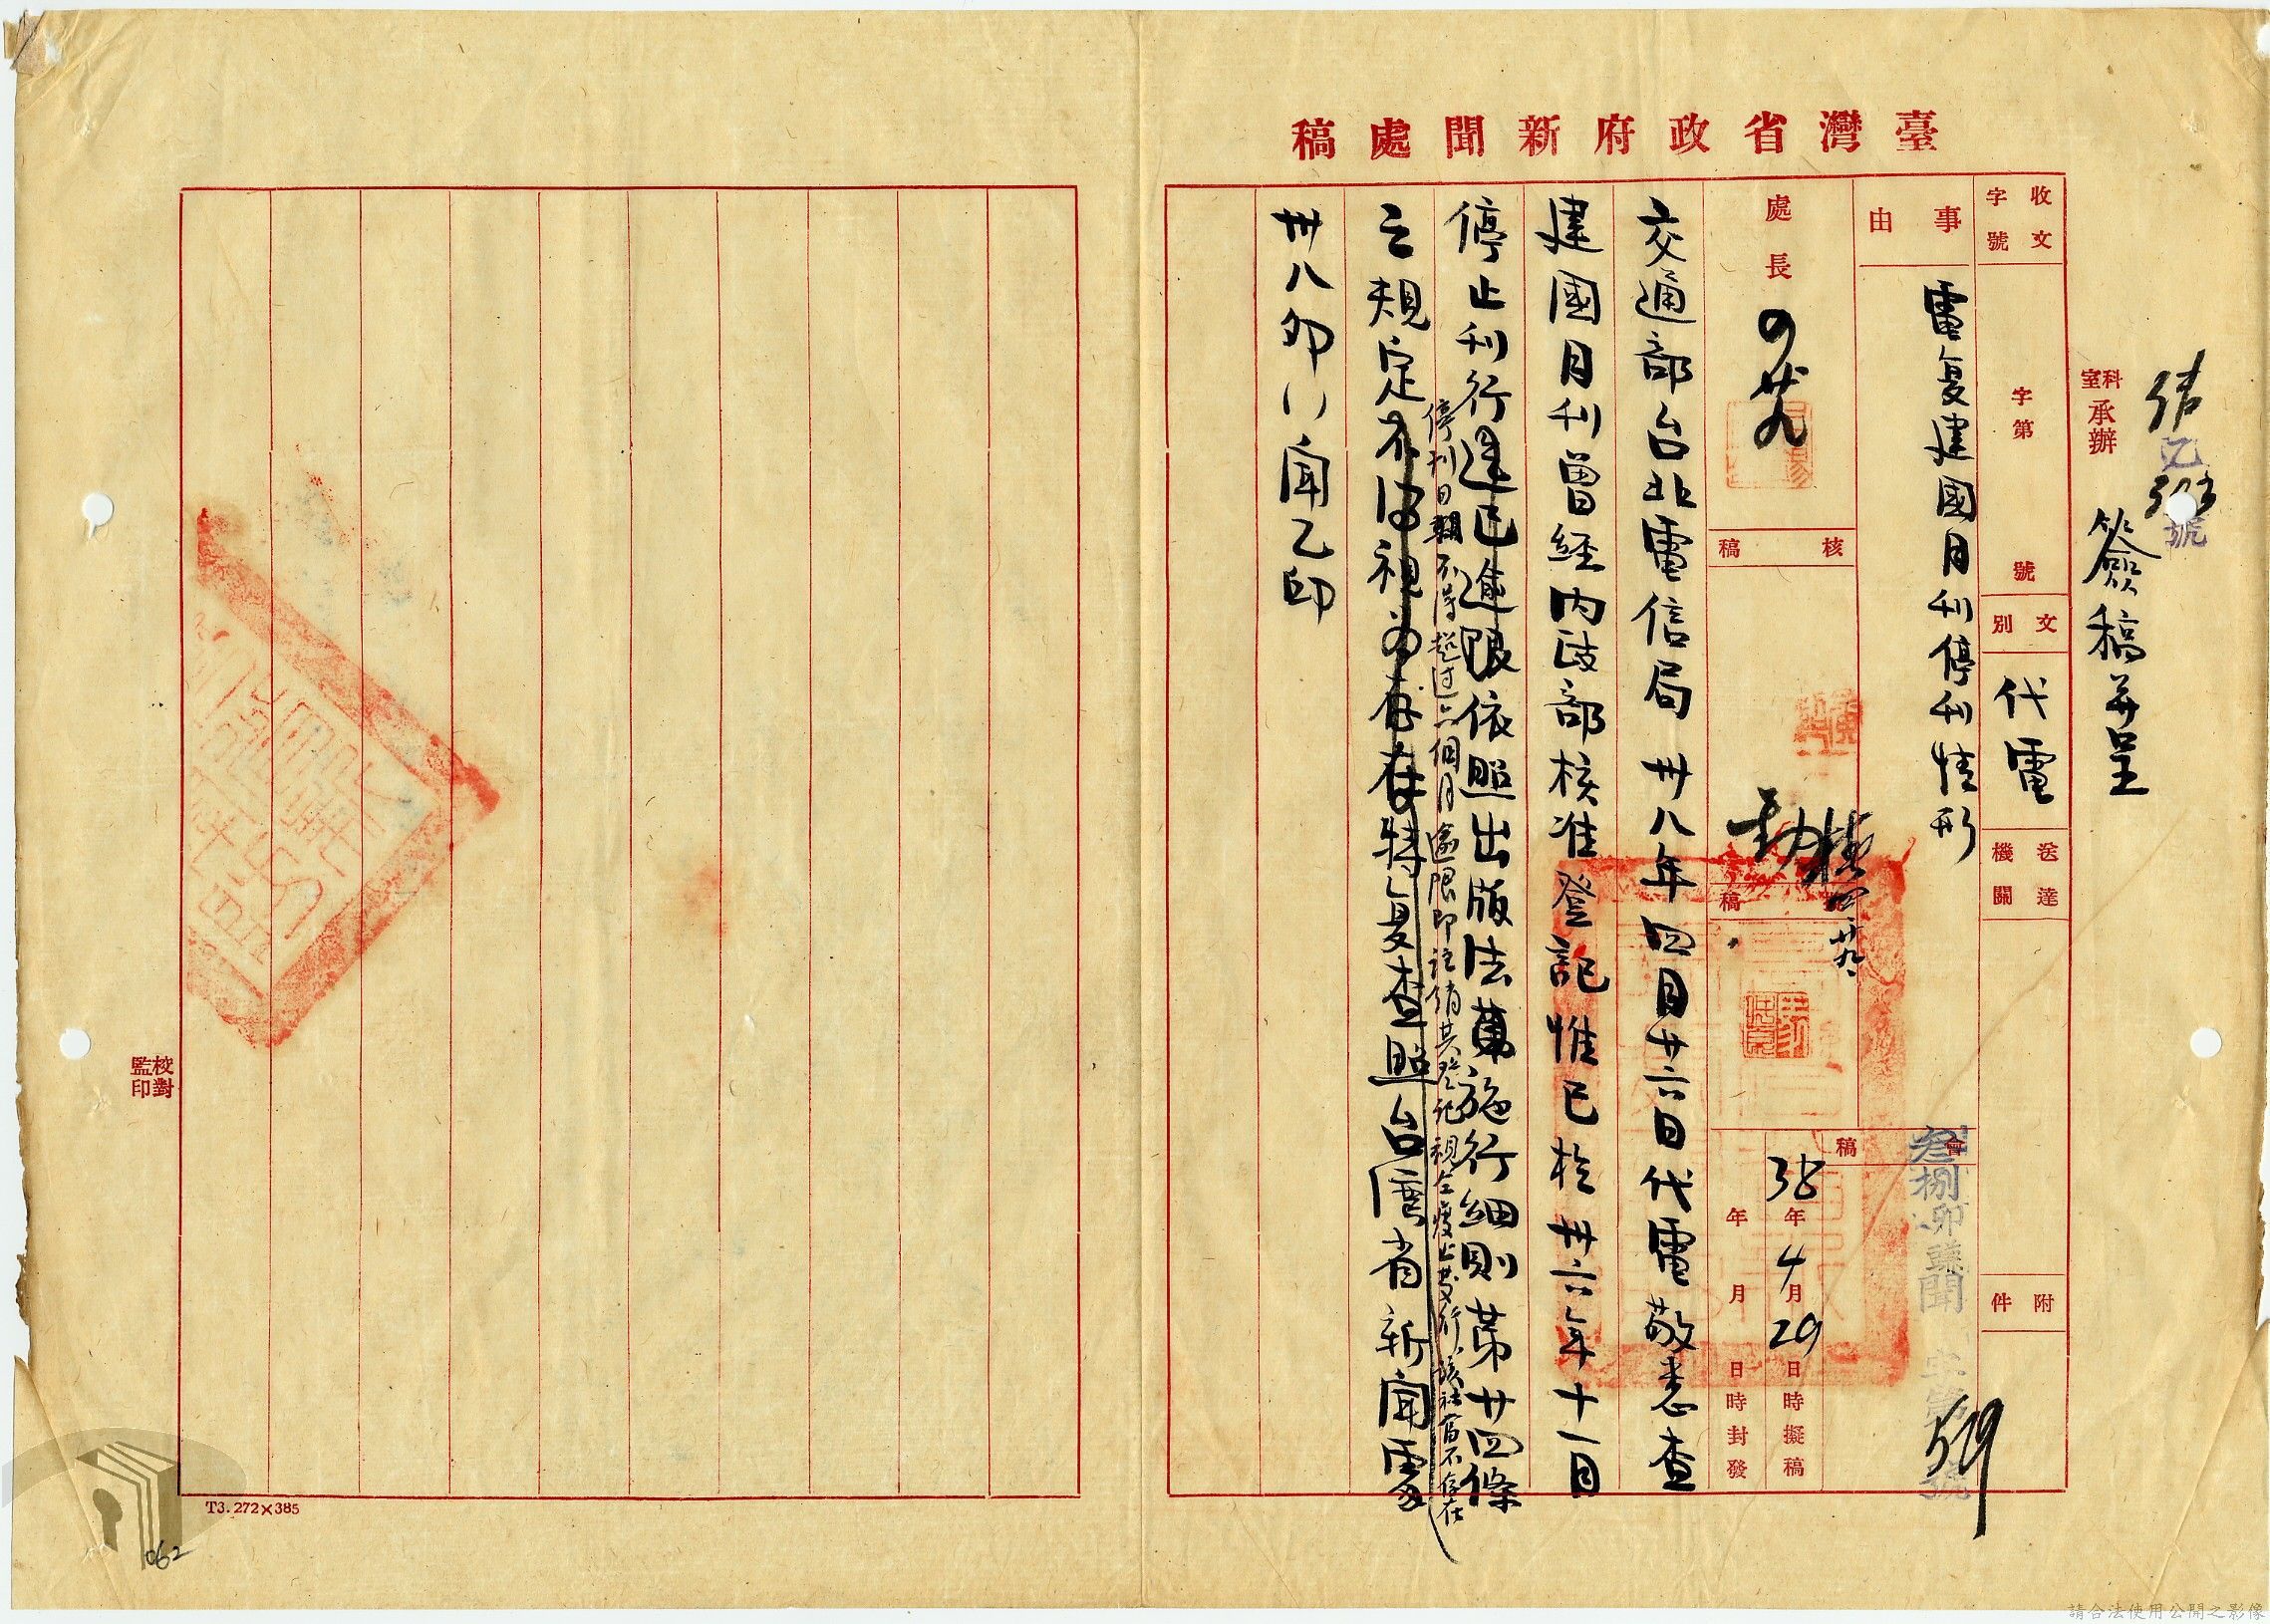 臺灣省政府新聞處稿
收文
字號
字第
號
文別
代電
送達機關
附件
科室承辦
簽稿并呈
號
事由
電复建國月刊停刊情形
叁捌卯
聞
529
號
處長
核稿
稿
會稿
38年4月29日時擬稿
年月日時封發
交通部台北電信局卅八年四月廿六日代電敬悉查
建國月刊曾經內政部核准登記惟已於卅六年十一月
停止刊行
依照出版法施行細則第廿四條
停刊日期不得超过六個月逾限即註銷其登記視全廢止發行該社當不存在
之規定
特复查照台灣省新聞處
卅八卯 聞乙印
校對
監印
T3. 272×385
062
請合法使用公開之影像